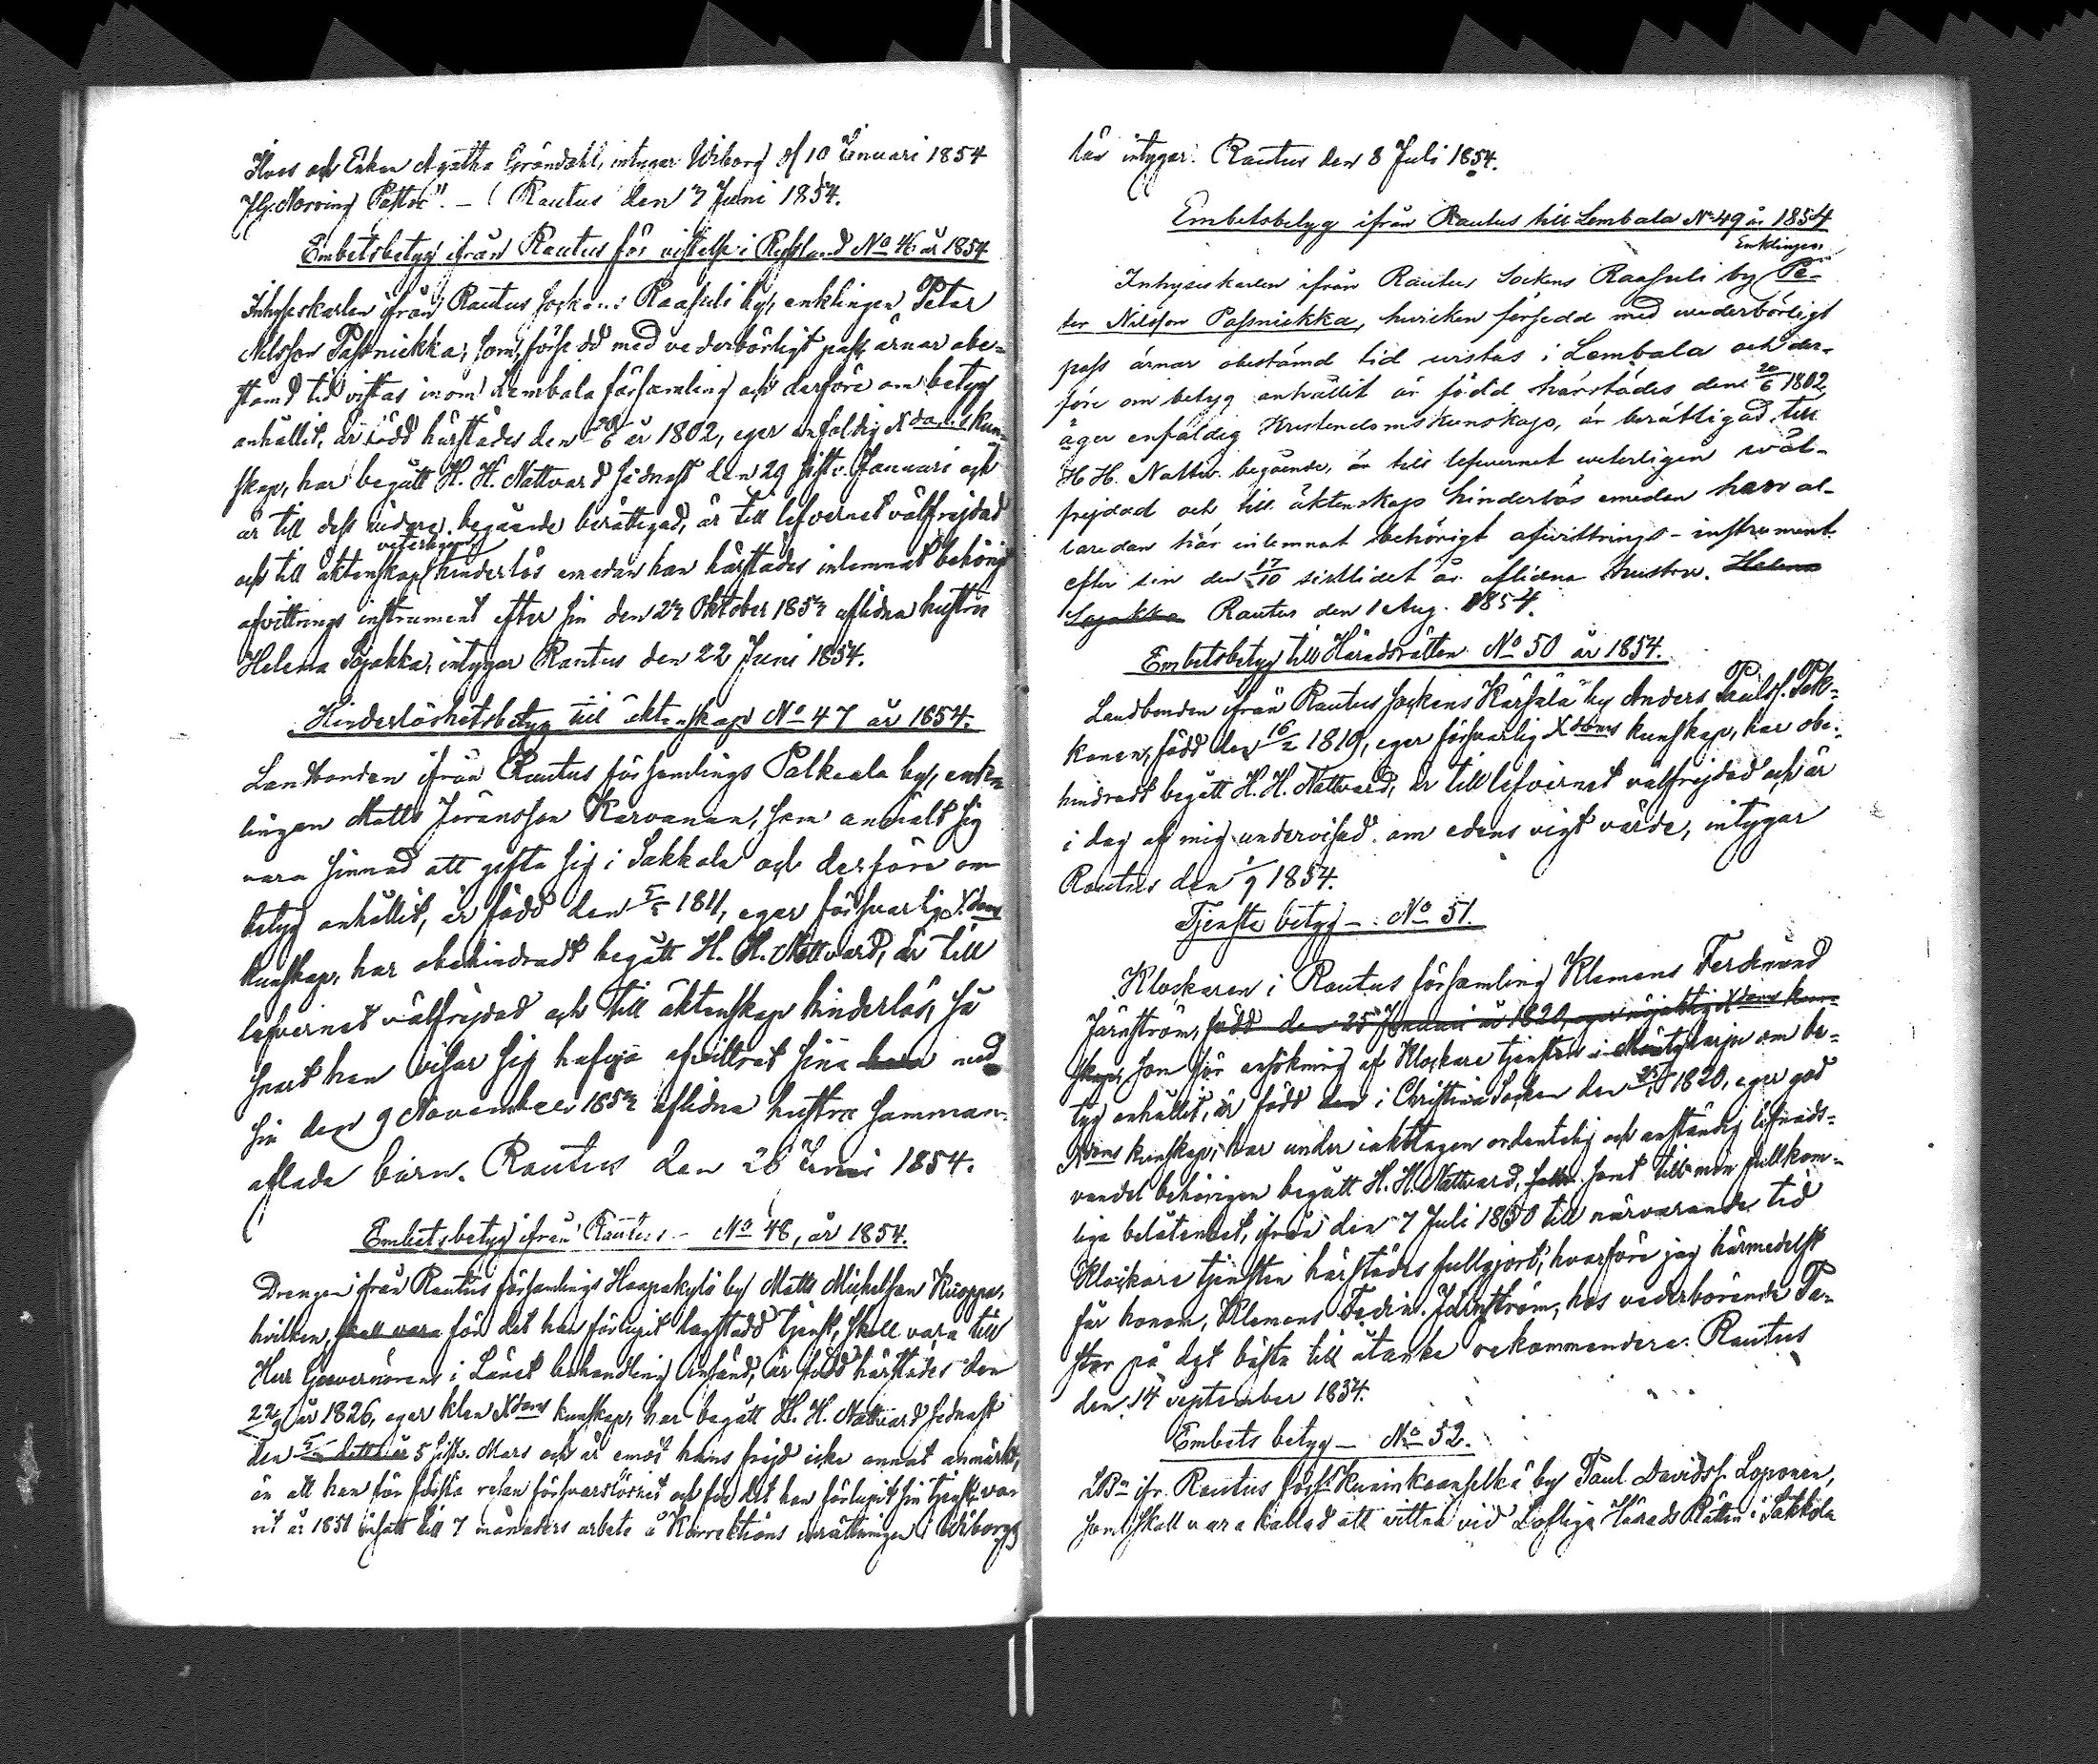 Enkan Agatha Gröndahl, intygar Wiborg d 10 Januari 1854
Pastor". — Rautus den 7 Juni 1854.
Embetsbetyg ifrån Rautus för vistelse i Ryssland No 46 år 1854
Inhyseskarlen ifrån Rautus sockens Raasuli by, enklingen Petar
Nilsson Passnickka, som, försedd med vederbörligt pass, ärnar obe-
stämd tid vistas inom Lembala församling och derföre om betyg
anhållit, är född härstädes den 20/6 år 1802, eger enfaldig Xdoms kun-
skap, har begått H. H. Nattvard sednast den 29 sistl. Januari och
är till dess vidare begående berättigad, är till lefvernet välfrejdad
och till äktenskap veterligen hinderlös emedan han härstädes inlemnat behörigt
afvittrings instrument efter sin den 27 Oktober 1852 aflidna hustru
Helena Sojakka, intygar Rautus den 22 Juni 1854.
Hinderlöshetsbetyg till äktenskap No 47 år 1854.
Landbonden ifrån Rautus församlings Palkeala by, enk-
lingen Matts Jöransson Karvanen, som anmält sig
vara sinnad att gifta sig i Sakkola och derföre om
betyg anhållit, är född den 1811, eger försvarlig Xdoms
kunskap, har obehindradt begått H. H. Nattvard, är till
lefvernet välfrejdad och till äktenskap hinderlös, så
snart han visar sig hafva afvittrat sina med
sin den 9 November 1852 aflidna hustru samman-
aflade barn. Rautus den 28 Juni 1854.
Embetsbetyg ifrån Rautus — No 48, år 1854.
Drengen ifrån Rautus församlings Haapakylä by Matts Michelsson Kuoppa,
hvilken, skall vara för det han förlupit laystadd tjenst, skall vara till
Herr Guvernörens i Länet behandling insänd, är född härstädes den
22/9 år 1826, eger klen Xdoms kunskap, har begått H. H. Nattvard sednast
den detta år 5 sistl. Mars och är emot hans frejd icke annat anmärkt,
än att han för första resan försvarslöshet och för det han förlupit sin tjenst, va-
rit år 1851 insatt till 7 månaders arbete å Korrektions inrättningen i Wiborg,
här intygar: Rautus den 8 Juli 1854.
Embetsbetyg ifrån Rautus till Lembala No 49 år 1854
Enklingen
Inhyseskarlen ifrån Rautus Sockens Raasuli by Pe-
ter Nilsson Passnickka, hvicken försedd med vederbörligt
pass ärnar obestämd tid vistas i Lembala och der-
före om betyg anhållit är född härstädes den 20/6 1802,
äger enfaldig Kristendomskunskap, är berättigad till
H H. Nattv. begående, är till lefvernet veterligen wäl-
frejdad och till äktenskap hinderlös emedan han al-
laredan här inlemnat behörigt afvittrings-instrument
efter sin den 27/10 sistlidet år aflidna hustru. Helena
Sojakka Rautus den 1 Aug. 1854.
Embetsbetyg till Häradsrätten No 50 år 1854.
Landbonden ifrån Rautus sockens Kärsälä by Anders Paulss. Pek-
konen, född den 16/2 1819, eger försvarlig Xdoms kunskap, har obe-
hindradt begått H. H. Nattvard, är till lefvernet välfrejdad och är
i dag af mig undervisad om edens vigt värde, intygar
Rautus den 1/9 1854.
Tjenste betyg — No 51.
Klockaren i Rautus församling Klemens Ferdinand
Järnström, född den 25 Januari år 1820, eger nöjaktig Xdoms kun-
skap, som för ansökning af Klockare tjensten i Mäntyharju om be-
tyg anhållit, är född den i Christina Socken den 25/1 1820, eger god
Xdoms kunskap, har under iakttagen ordentelig och anständig lefnads-
vandel behörigen begått H. H. Nattvard, samt till min fullkom-
liga belåtenhet, ifrån den 7 Juli 1850 till närvarande tid
Klockare tjensten härstädes fullgjort; hvarföre jag härmedelst
får honom, Klemens Ferdin. Järnström, hos vederbörande Pa-
stor på det bästa till åtanke rekommendera. Rautus
den 14 September 1854.
Embets betyg — No 52.
LBn ifr. Rautus förs. Kuninkaanselkä by Paul Davidss. Loponen,
som, skall vara kallad att vittna vid Lofliga Härads Rätten i Sakkola